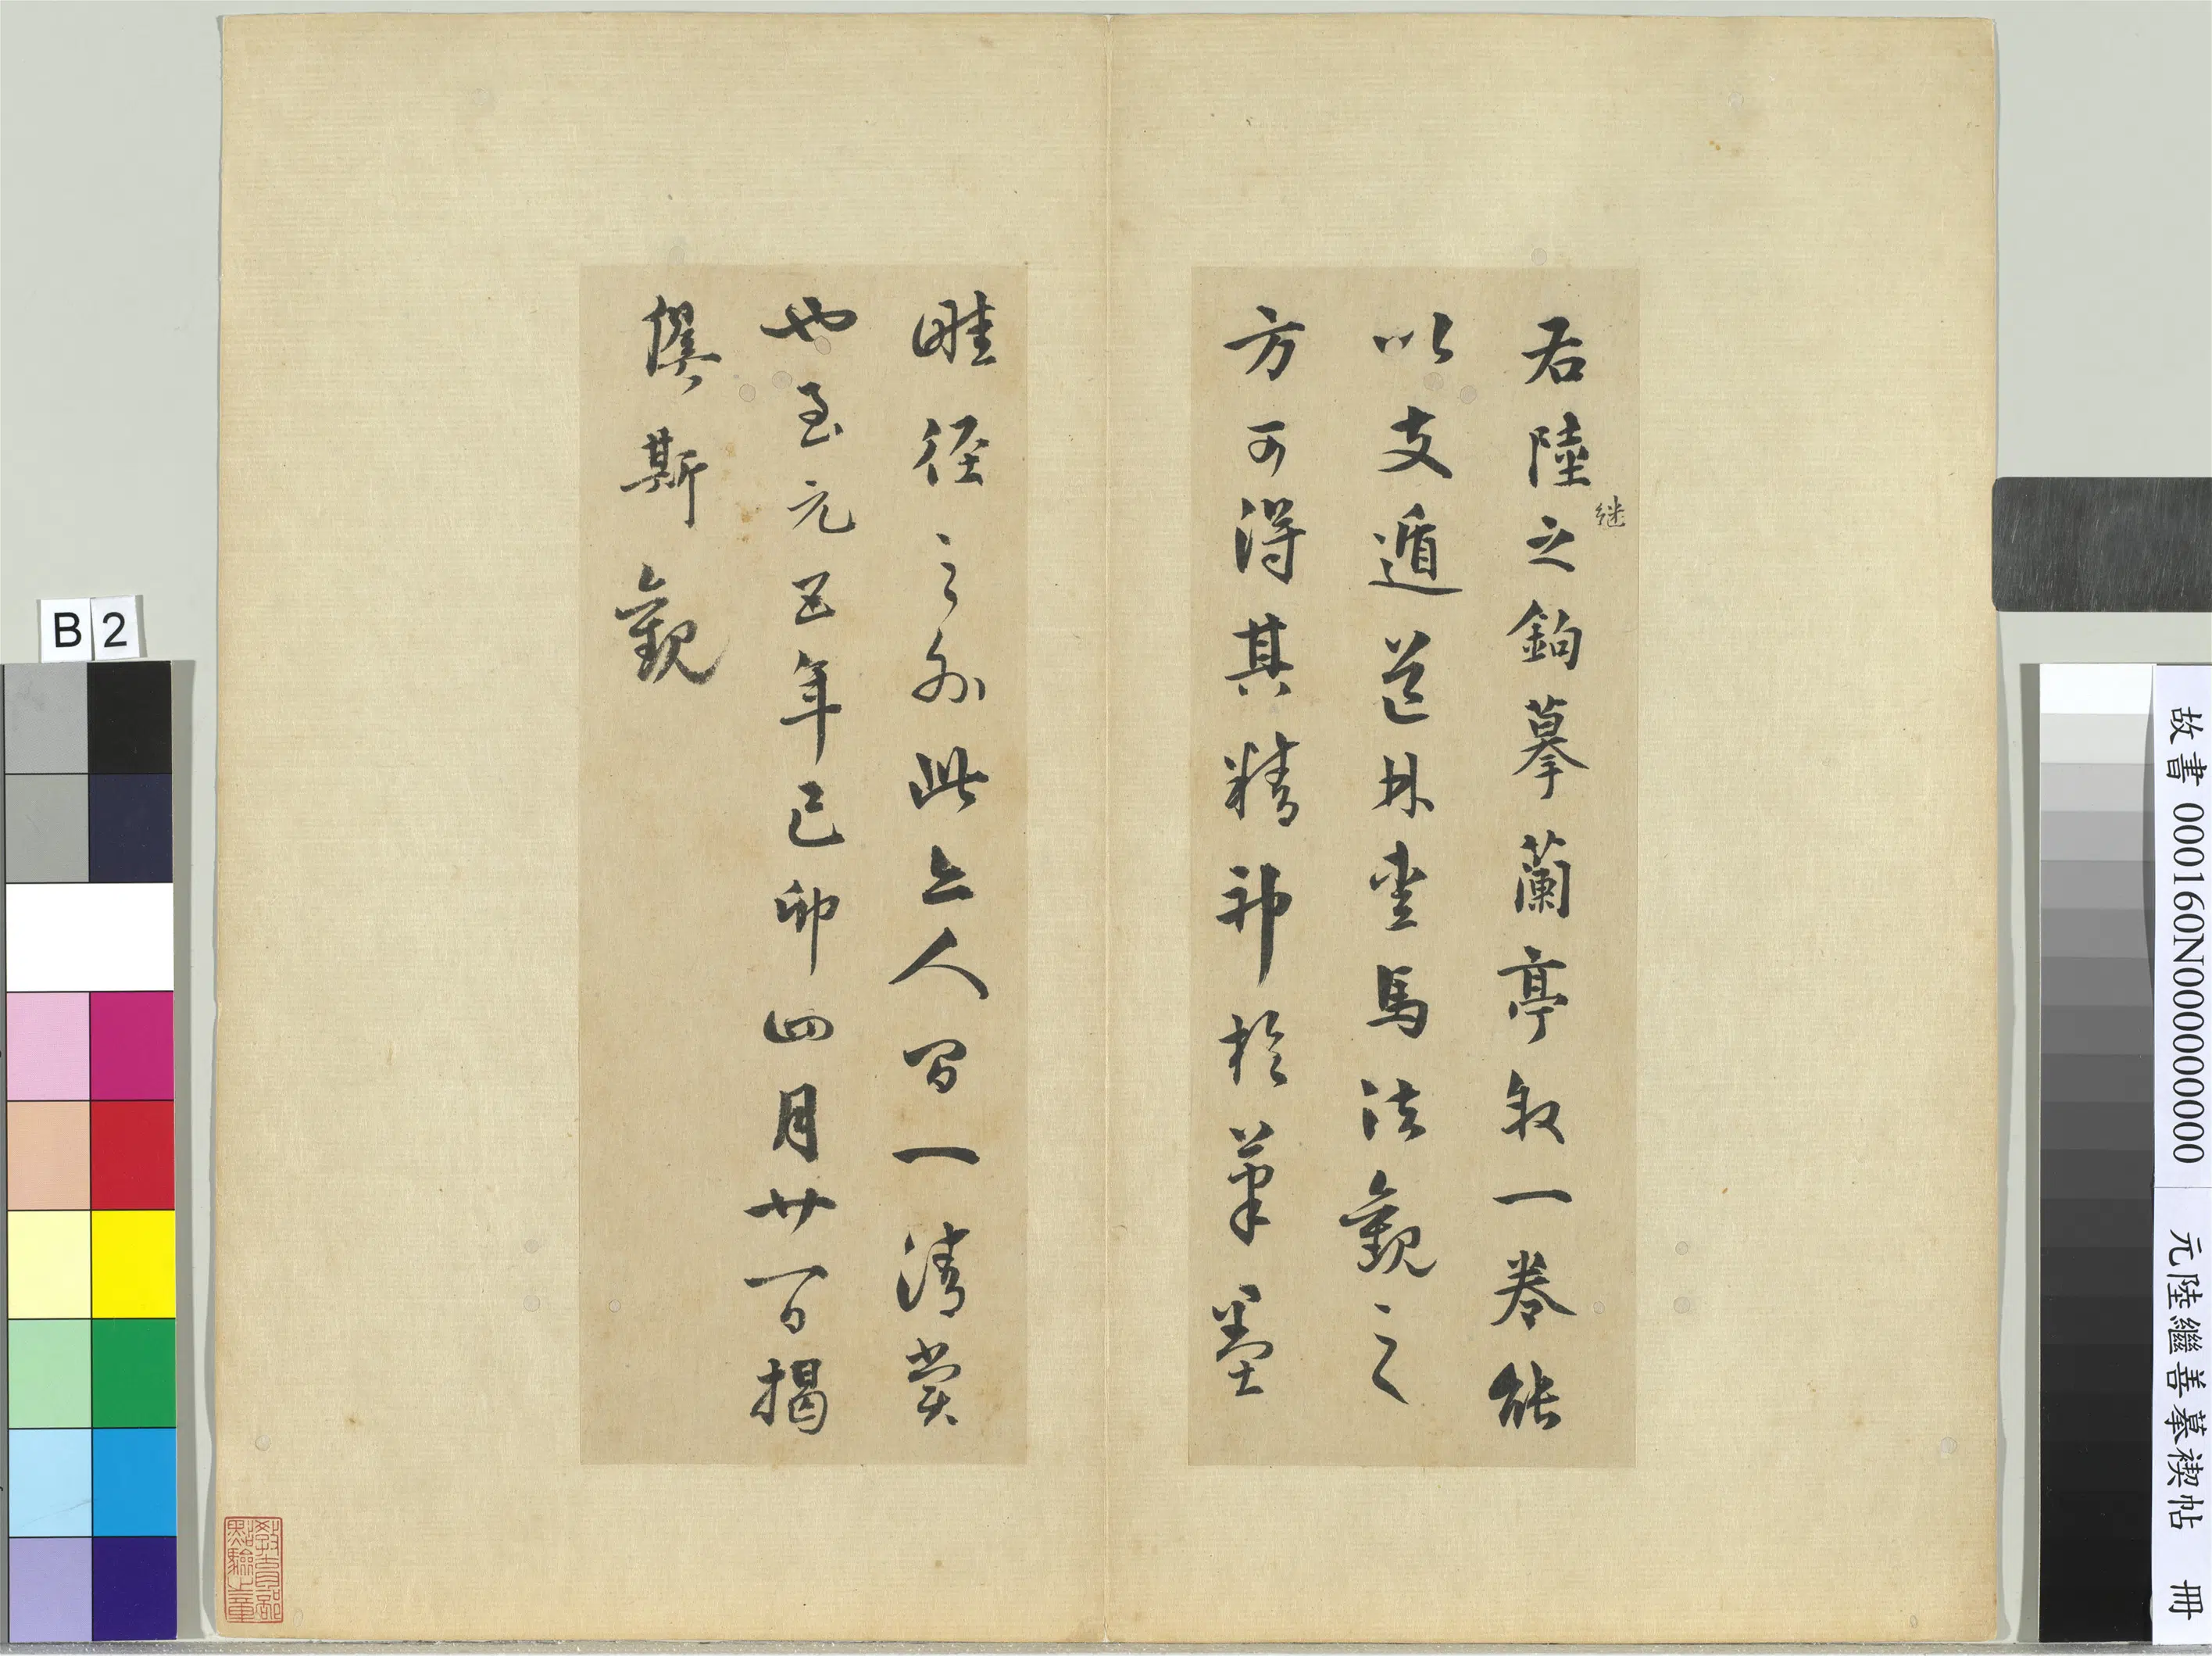 右陸継之鉤摹蘭亭叙一卷能
以支遁道林畜馬法觀之
方可得其精神於筆墨
畦徑之外此亦人間一清賞
也至元五年己卯四月廿一日揭
傒斯觀
教育部
點驗之章
B2
故書 000160N000000000 元陸繼善摹禊帖 冊